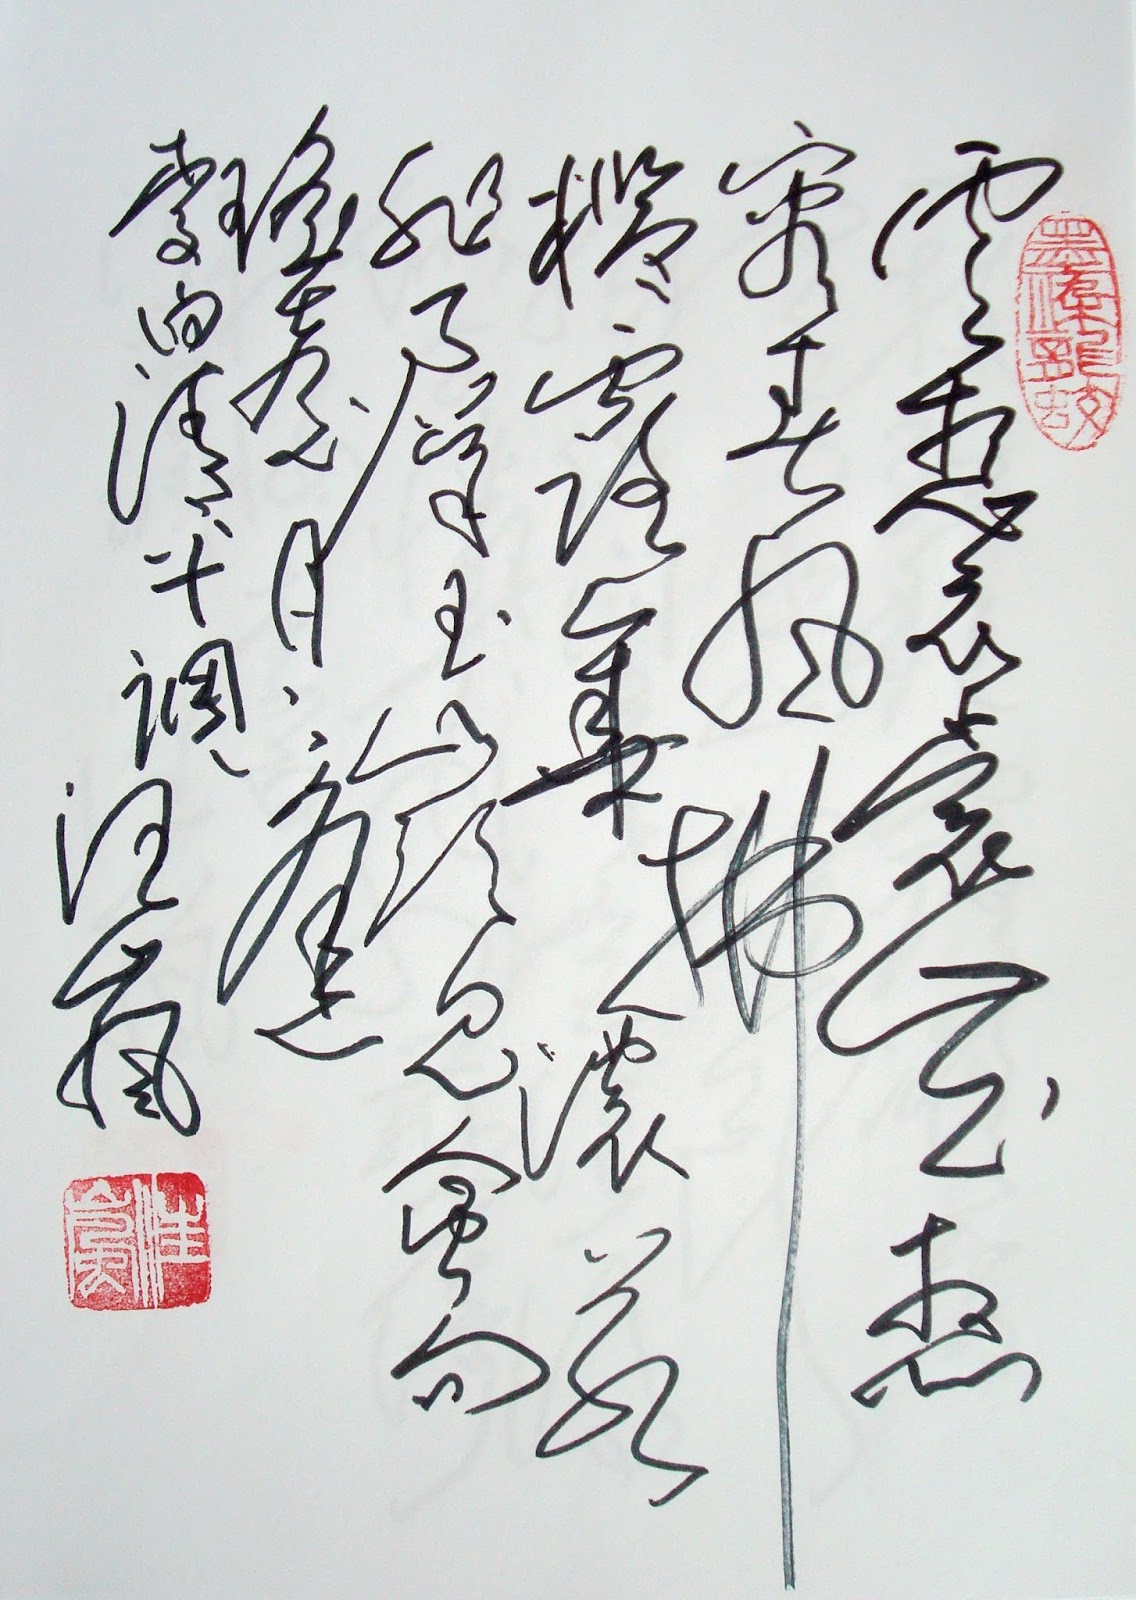 雲想衣裳花想
容春風拂
檻露華濃若
非羣玉山頭見會向
瑤臺月下逢
李白清平調 汪